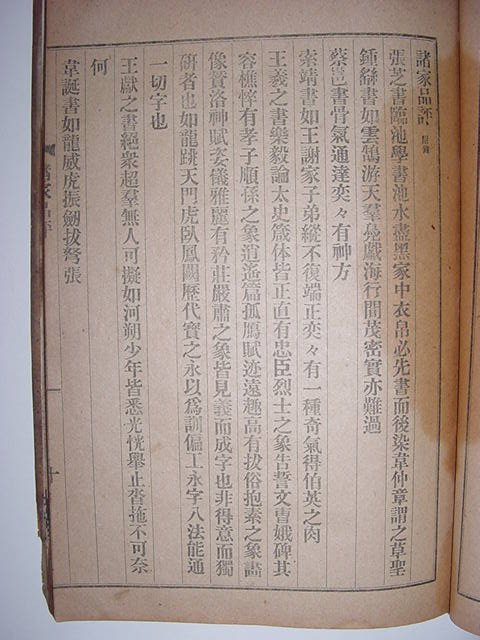 諸家品評
張芝書臨池學書池水盡黑家中衣帛必先書而後染韋仲章謂之草聖
鍾繇書如雲鵠游天羣鳧戲海行間茂密實亦難過
蔡邕書骨氣通達奕々有神方
索靖書如王謝家子弟縱不復端正奕々有一種奇氣得伯英之肉
王羲之書樂毅論太史箴体皆正直有忠臣烈士之象告誓文曹娥碑其
容樵悴有孝子順孫之象逍遙篇孤鴈賦迹遠趣高有拔俗抱素之象畵
像贊洛神賦姿儀雅麗有矜莊嚴肅之象皆見義而成字也非得意而獨
硏者也如龍跳天門虎臥鳳闕歷代寶之永以爲訓偏工永字八法能通
一切字也
王獻之書絕衆超羣無人可擬如河朔少年皆悉光恍舉止沓拖不可奈
何
韋誕書如龍威虎振劒拔弩張
諸家品評